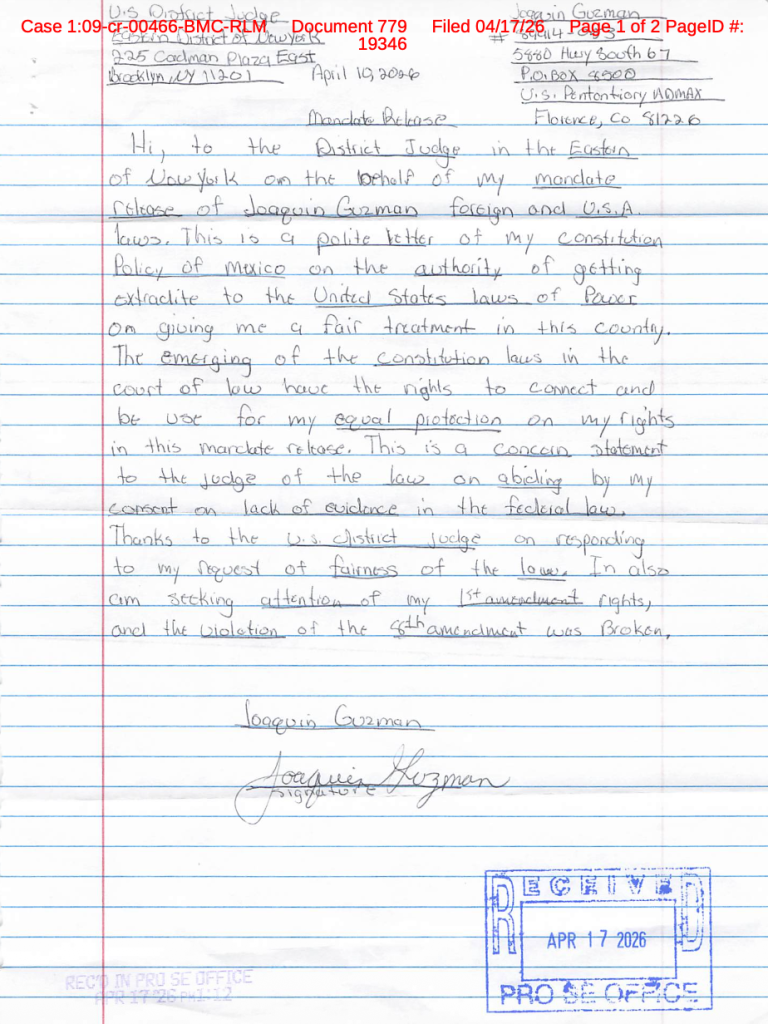 U.S District Judge
Joaquin Guzman
Case 1:09-cr-00466-BMC-RLM Document 779 Filed 04/17/26 Page 1 of 2 PageID #:
19346
Eastern District of New York
#
225 Cadman Plaza East
5880 Hwy South 67
Brooklyn, NY 11201
April 10, 2026
P.O. Box 8500
U.S. Pentontiory ADMAX
Mandate Release
Florence, Co 81226
Hi, to the District Judge in the Eastern
of New York on the behalf of my mandate
release of Joaquin Guzman foreign and U.S.A.
laws. This is a polite letter of my constitution
Policy of mexico on the authority of getting
extradite to the United States laws of Power
on giving me a fair treatment in this country.
The emerging of the constitution laws in the
court of law have the rights to connect and
be use for my equal protection on my rights
in this mandate release. This is a concern statement
to the judge of the law on abiding by my
consent on lack of evidence in the federal law.
Thanks to the U.S. district judge on responding
to my request of fairness of the law. In also
am seeking attention of my 1st amendment rights,
and the violation of the 8th amendment was Broken.
Joaquin Guzman
Joaquin Guzman
signature
RECEIVED
APR 17 2026
PRO SE OFFICE
REC'D IN PRO SE OFFICE
APR 17 '26 PM1:12